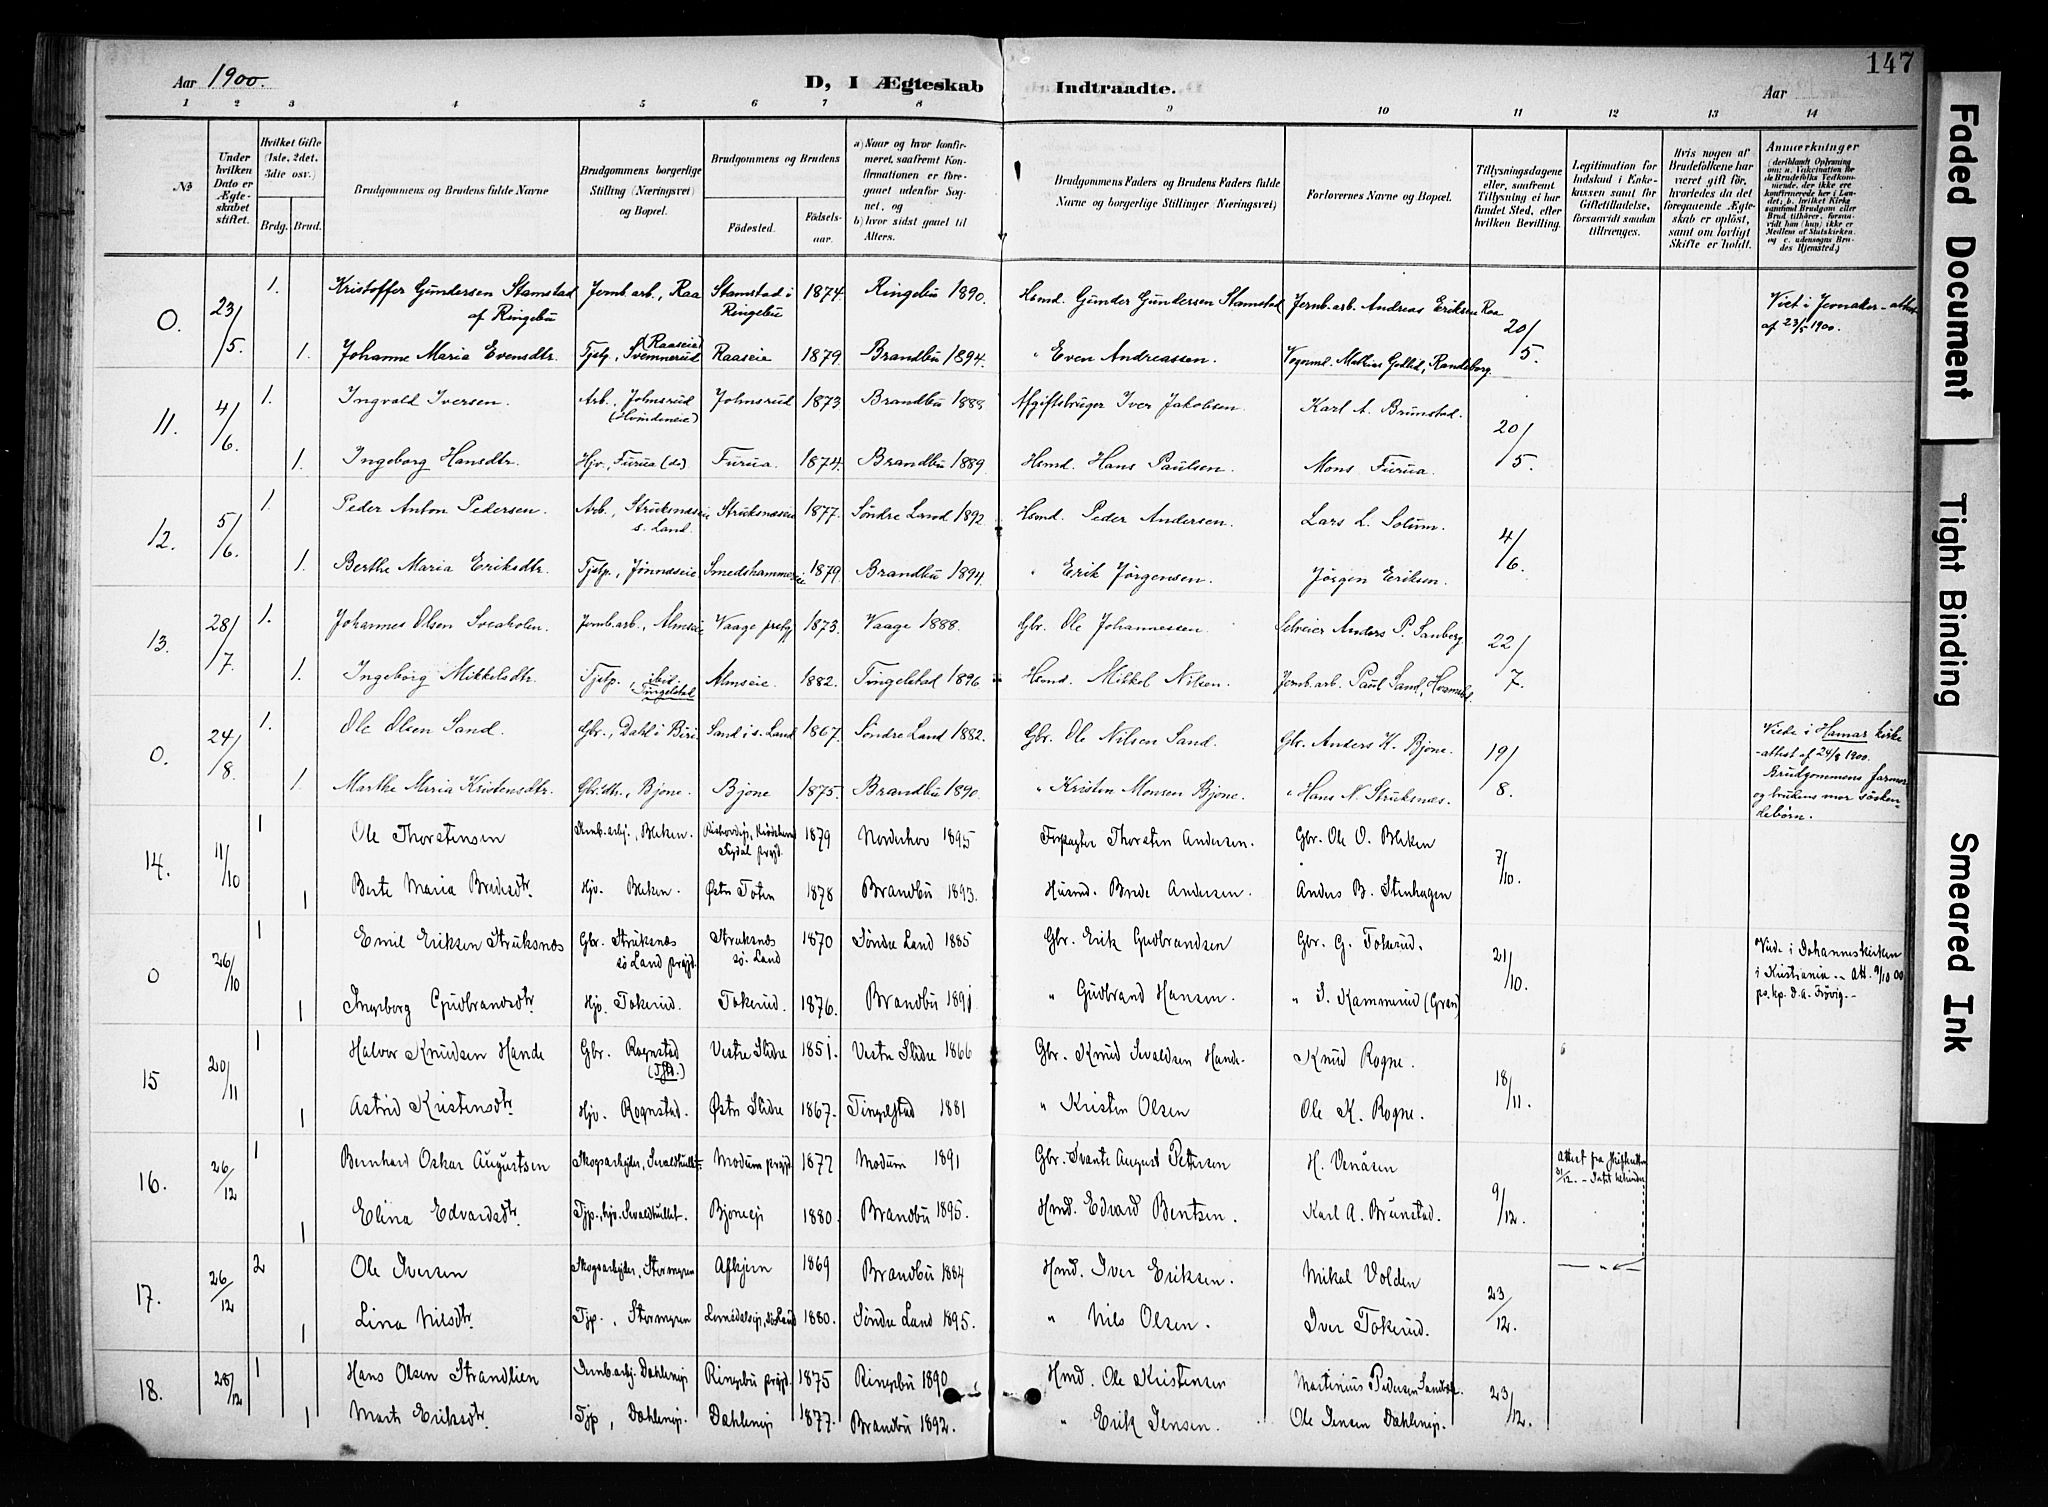 147
Aar 1900.
D, I Ægteskab Indtraadte.
Aar
1 2 3 4 5 6 7 8 9 10 11 12 13 14
№
Under hvilken Dato er Ægteskabet stiftet.
Hvilket Gifte (1ste, 2det, 3die osv.)
Brdg. Brud.
Brudgommens og Brudens fulde Navne
Brudgommens borgerlige Stilling (Næringsvei) og Bopæl.
Brudgommens og Brudens
Födested. Födselsaar.
a) Naar og hvor konfirmeret, saafremt Konfirmationen er foregaaet udenfor Sognet, og b) hvor sidst gaaet til Alters.
Brudgommens Faders og Brudens Faders fulde Navne og borgerlige Stillinger (Næringsvei)
Forlovernes Navne og Bopæl.
Tillysningsdagene eller, saafremt Tillysning ei har fundet Sted, efter hvilken Bevilling.
Legitimation for Indskud i Enkekassen samt for Giftetilladelse, forsaavidt saadan tiltrænges.
Hvis nogen af Brudefolkene har været gift för, hvorledes da det foregaaende Ægteskab er oplöst, samt om lovligt Skifte er holdt.
Anmærkninger
0. 23/5. 1. Kristoffer Gundersen Stamstad af Ringebu Jernb. arb., Raa Stamstad i Ringebu 1874. Ringebu 1890. Hsmd. Gunder Gundersen Stamstad Jernb. arb. Andreas Eriksen Raa 20/5. Viet i Jevnaker - attest af 23/5 1900.
1. Johanne Maria Evensdtr. Tjstp., Svemnerud (Raaseie) Raaseie 1879. Brandbu 1894. " Even Andreassen. Vognmd. Mathias Godlid, Randsborg.
11. 4/6. 1. Ingvald Iversen. Arb., Johnsrud (Hvindeneie) Johnsrud 1873. Brandbu 1888. Afgiftsbruger Iver Jakobsen. Karl A. Brunstad. 20/5.
1. Ingeborg Hansdtr. Hjv., Furua (do) Furua. 1874. Brandbu 1889. Hsmd. Hans Paulsen. Mons Furua.
12. 5/6. 1. Peder Anton Pedersen. Arb., Struksnæseie s. Land. Struksnæseie 1877. Söndre Land 1892. Hsmd. Peder Andersen. Lars L. Solum. 4/6.
1. Berthe Maria Eriksdtr. Tjstp., Jönnæseie Smedshammereie 1879. Brandbu 1894. " Erik Jörgensen. Jörgen Eriksen.
13. 28/7. 1. Johannes Olsen Sveaholen. Jernb. arb., Almseie Vaage prstgj. 1873. Vaage 1888. Gbr. Ole Johannessen. Selveier Anders P. Sanberg 22/7.
1. Ingeborg Mikkelsdtr. Tjstp., ibid. Tingelstad Almseie. 1882. Tingelstad 1896. Hsmd. Mikkel Nilsen. Jernb. arb. Paul Sand,
0. 24/8. 1. Ole Olsen Sand. Gbr., Dahl i Biri Sand i s. Land 1867. Söndre Land 1882. Gbr. Ole Nilsen Sand. Gbr. Anders K. Bjone. 19/8. Viede i Hamar kirke - attest af 24/8 1900. Brudgommens farmor og brudens mor söskendebörn.
1. Marthe Maria Kristensdtr. Gbrdtr., Bjone. Bjone 1875. Brandbu 1890. " Kristen Monsen Bjone. " Hans N. Struksnæs.
14. 11/10 1 Ole Thorstensen Jernb. arbj., Bleken. Sigdal prgjd. 1879 Norderhov 1895 Forpagter Thorsten Andersen. Gbr. Ole O. Bleken 7/10.
1 Berte Maria Bredesdtr. Hjv. Bleken. Østre Toten 1878 Brandbu 1893. Husmd. Brede Andersen. Anders B. Stenhagen
0 26/10 1 Emil Eriksen Struksnæs Gbr. Struksnæs sö Land prgjd. Struksnæs sö. Land 1870 Söndre Land 1885 Gbr. Erik Gudbrandsen Gbr. G. Tokerud. 21/10. Viede i Johanneskirken i Kristiania - Att. 9/10 00 ps. kp. D. A. Frövig. -
1 Ingeborg Gudbrandsdtr Hjv. Tokerud. Tokerud. 1876. Brandbu 1891 " Gudbrand Hansen. " I. Kammerud (Gran)
15 20/11 1 Halvor Knudsen Hande Gbr. Rognstad Vestre Slidre 1851. Vestre Slidre 1866 Gbr. Knud Ivaldsen Hande. Knud Rogne. 18/11.
1 Astrid Kristensdtr. Hjv. Rognstad. Østre Slidre 1867. Tingelstad 1881 " Kristen Olsen Ole K. Rogne.
16. 26/12 1 Bernhard Oskar Augustsen Skogsarbejder, Svaldhullet. Modum prgjd 1872 Modum 1891 Gbr. Svante August Petersen H. Venåsen 9/12.
1 Elina Edvardsdtr Tjp., hjv. Svaldhullet. Bjoneej 1880. Brandbu 1895. Hmd. Edvard Bentsen. Karl A. Brunstad.
17. 26/12 2 Ole Iversen Skogsarbejder, Stormyren Afkjern 1869 Brandbu 1884 Hmd. Iver Eriksen. Mikal Volden 23/12. — " —
1 Lina Nilsdtr. Tjp., Stormyren 1880. Söndre Land 1895. " Nils Olsen. Iver Tokerud.
18. 28/12 1 Hans Olsen Strandlien Jernb. arbj. Dahleneje Ringebu prgjd. 1875 Ringebu 1890 Hmd. Ole Kristensen Martinius Pedersen 23/12.
1 Marte Eriksdtr. Tjp, Dahleneje. Dahleneje 1877. Brandbu 1892. " Erik Jensen. Ole Jensen Dahleneje.
Faded Document
Tight Binding
Smeared Ink